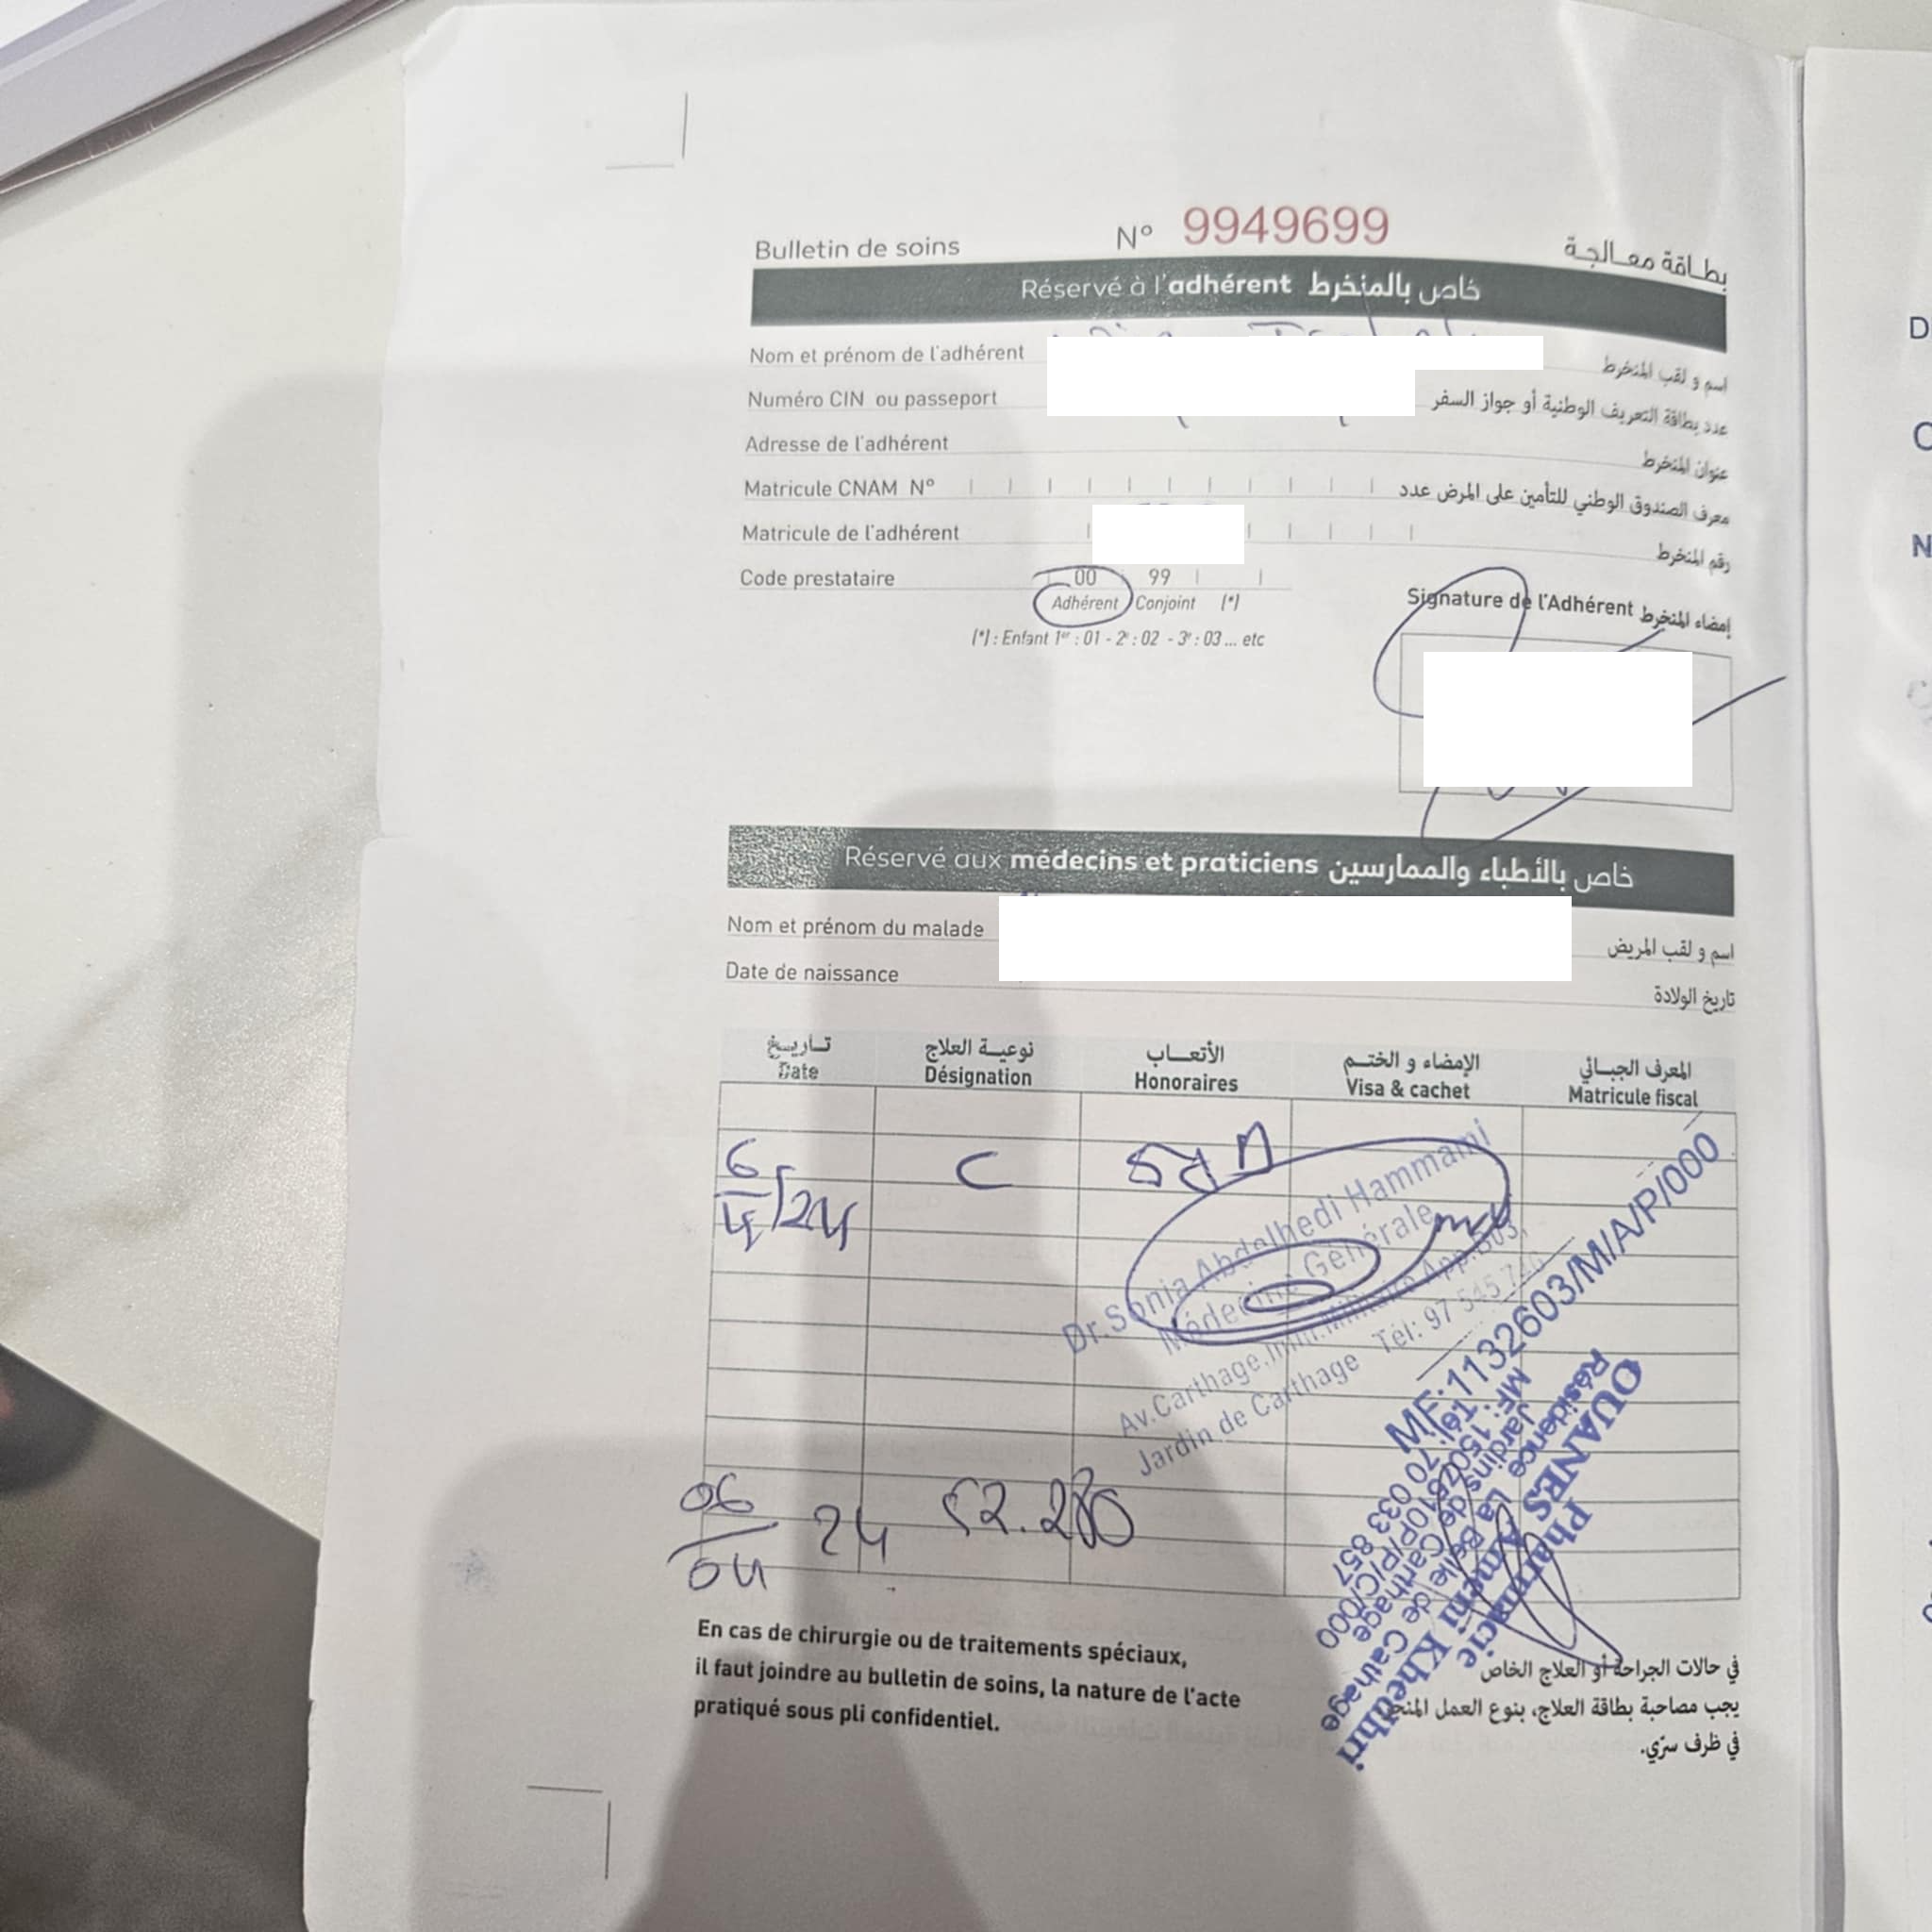 Bulletin de soins N° 9949699 بطاقة معالجة
Réservé à l'adhérent خاص بالمنخرط
Nom et prénom de l'adhérent اسم و لقب المنخرط
Numéro CIN ou passeport عدد بطاقة التعريف الوطنية أو جواز السفر
Adresse de l'adhérent عنوان المنخرط
Matricule CNAM N° معرف الصندوق الوطني للتأمين على المرض عدد
Matricule de l'adhérent رقم المنخرط
Code prestataire 00 99
Adhérent Conjoint (*)
(*) : Enfant 1er : 01 - 2e : 02 - 3e : 03 ... etc
Signature de l'Adhérent إمضاء المنخرط
Réservé aux médecins et praticiens خاص بالأطباء والممارسين
Nom et prénom du malade اسم و لقب المريض
Date de naissance تاريخ الولادة
تاريخ نوعية العلاج الأتعاب الإمضاء و الختم المعرف الجبائي
Date Désignation Honoraires Visa & cachet Matricule fiscal
6/4/24 C
Dr.Sonia Abdelhedi Hammami
Médecine Générale
Av.Carthage,Imm.Militaire App.B03,
Jardin de Carthage Tél: 97 545 740
MF:1132603/M/A/P/000
06/04 24 52.280
Pharmacie
OUANES Ameni Khedhri
Résidence La Belle de Cathage
Jardins de Carthage
MF: 1502510P/P/C/000
Tél: 70 033 857
En cas de chirurgie ou de traitements spéciaux,
il faut joindre au bulletin de soins, la nature de l'acte
pratiqué sous pli confidentiel.
في حالات الجراحة أو العلاج الخاص
يجب مصاحبة بطاقة العلاج، بنوع العمل
في ظرف سرّي.